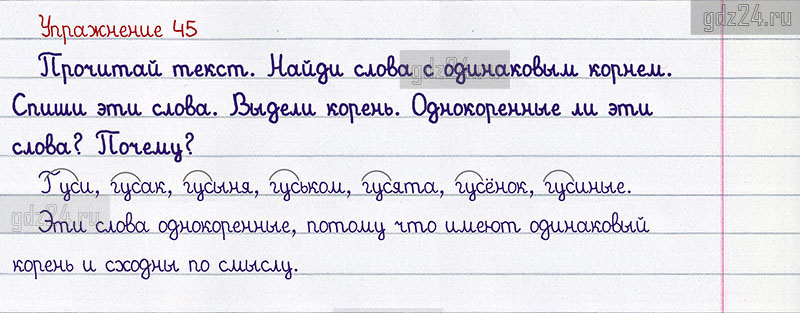 gdz24.ru
Упражнение 45
Прочитай текст. Найди слова с одинаковым корнем.
Спиши эти слова. Выдели корень. Однокоренные ли эти
слова? Почему?
Гуси, гусак, гусыня, гуськом, гусята, гусёнок, гусиные.
gdz24.ru
Эти слова однокоренные, потому что имеют одинаковый
корень и сходны по смыслу.